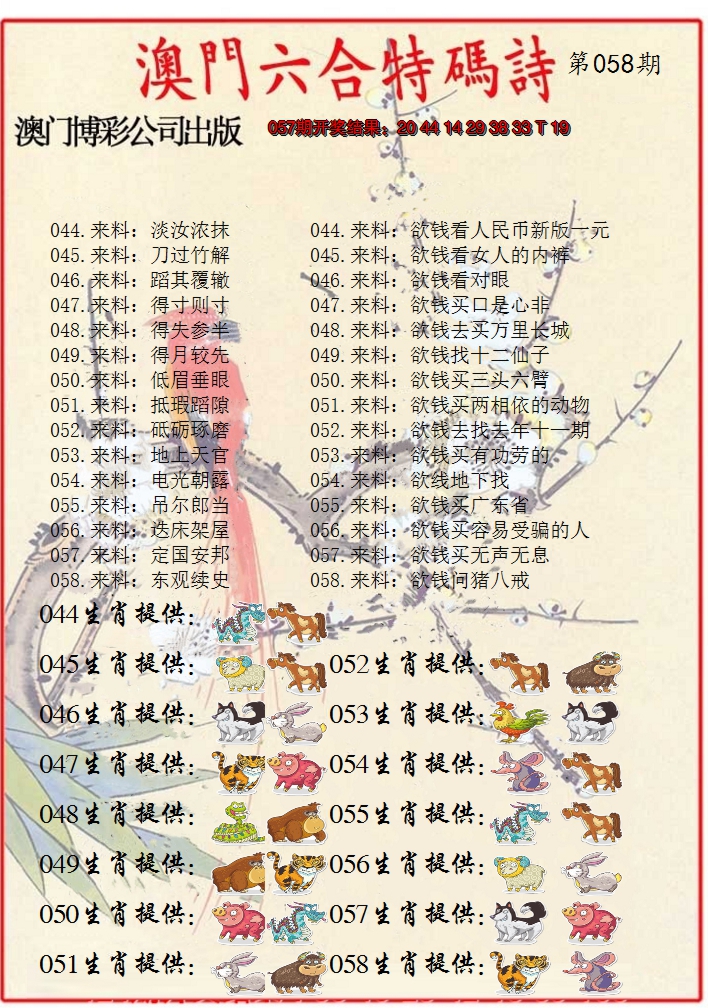 澳門六合特碼詩 第058期
澳门博彩公司出版 057期开奖结果：20 44 14 29 38 33 T 19
044.来料：淡汝浓抹 044.来料：欲钱看人民币新版一元
045.来料：刀过竹解 045.来料：欲钱看女人的内裤
046.来料：蹈其覆辙 046.来料：欲钱看对眼
047.来料：得寸则寸 047.来料：欲钱买口是心非
048.来料：得失参半 048.来料：欲钱去买万里长城
049.来料：得月较先 049.来料：欲钱找十二仙子
050.来料：低眉垂眼 050.来料：欲钱买三头六臂
051.来料：抵瑕蹈隙 051.来料：欲钱买两相依的动物
052.来料：砥砺琢磨 052.来料：欲钱去找去年十一期
053.来料：地上天官 053.来料：欲钱买有功劳的
054.来料：电光朝露 054.来料：欲线地下找
055.来料：吊尔郎当 055.来料：欲钱买广东省
056.来料：迭床架屋 056.来料：欲钱买容易受骗的人
057.来料：定国安邦 057.来料：欲钱买无声无息
058.来料：东观续史 058.来料：欲钱问猪八戒
044生肖提供：
045生肖提供： 052生肖提供：
046生肖提供： 053生肖提供：
047生肖提供： 054生肖提供：
048生肖提供： 055生肖提供：
049生肖提供： 056生肖提供：
050生肖提供： 057生肖提供：
051生肖提供： 058生肖提供：